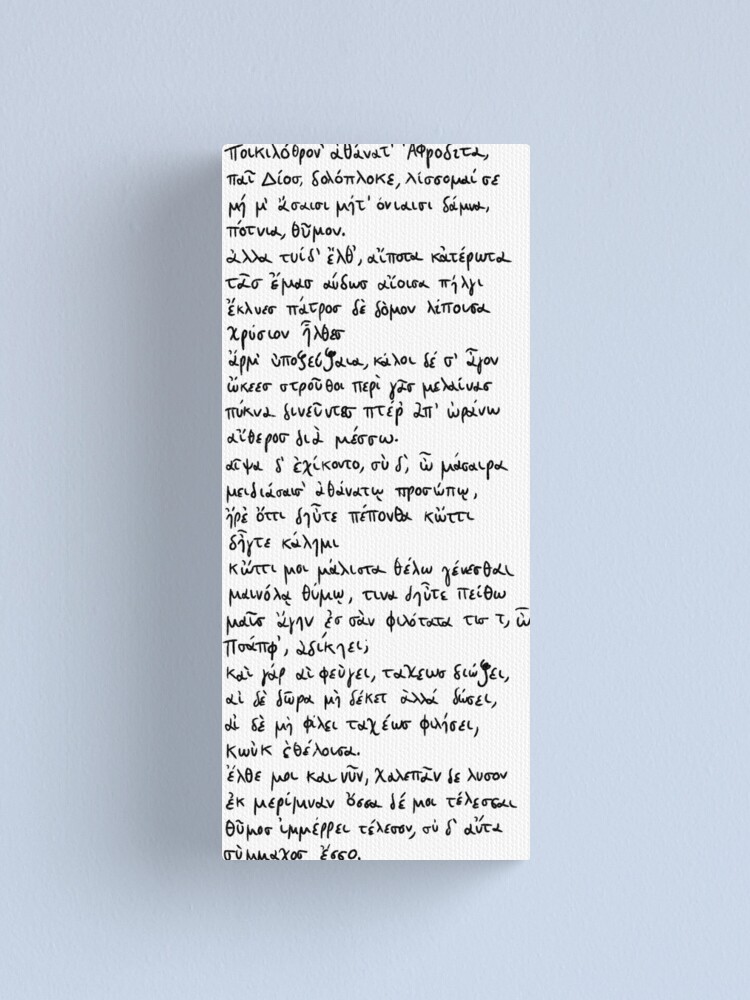 Ποικιλόθρον' ἀθάνατ' Ἀφροδιτα,
παῖ Δίοσ, δολόπλοκε, λίσσομαί σε
μή μ' ἄσαισι μήτ' ὀνιαισι δάμνα,
πότνια, θῦμον.
ἀλλα τυίδ' ἔλθ', αἴποτα κἀτέρωτα
τᾶσ ἔμασ αύδωσ αἴοισα πήλγι
ἔκλυεσ πάτροσ δὲ δὸμον λίποισα
χρύσιον ἦλθεσ
ἄρμ' ὐποζευζαια, κάλοι δέ σ' ἆγον
ὤκεεσ στροῦθοι περὶ γᾶσ μελαίνασ
πύκνα δινεῦντεσ πτέρ ἀπ' ὠράνω
αἴθεροσ διὰ μέσσω.
αῖψα δ' ἐχίκοντο, σὺ δ', ὦ μάσαιρα
μειδιάσαισ' ἀθάνατῳ προσώπῳ,
ἤρἐ ὄττι δηὖτε πέπονθα κὤττι
δἦγτε κάλημι
κὤττι μοι μάλιστα θέλω γένεσθαι
μαινόλᾳ θύμῳ, τινα δηὖτε πείθω
μαῖσ ἄγην ἐσ σὰν φιλότατα τισ τ, ὦ
Πσάπφ', ἀδίκηει;
καὶ γάρ αἰ φεύγει, ταχεωσ διώζει,
αἰ δὲ δῶρα μὴ δέκετ ἀλλά δώσει,
αἰ δὲ μὴ φίλει ταχέωσ φιλήσει,
κωὐκ ἐθέλοισα.
ἔλθε μοι και νῦν, χαλεπᾶν δε λυσον
ἐκ μερίμναν ὄσσα δέ μοι τέλεσσαι
θῦμοσ ἰμμέρρει τέλεσον, σὐ δ' αὔτα
σὺμμαχοσ ἔσσο.